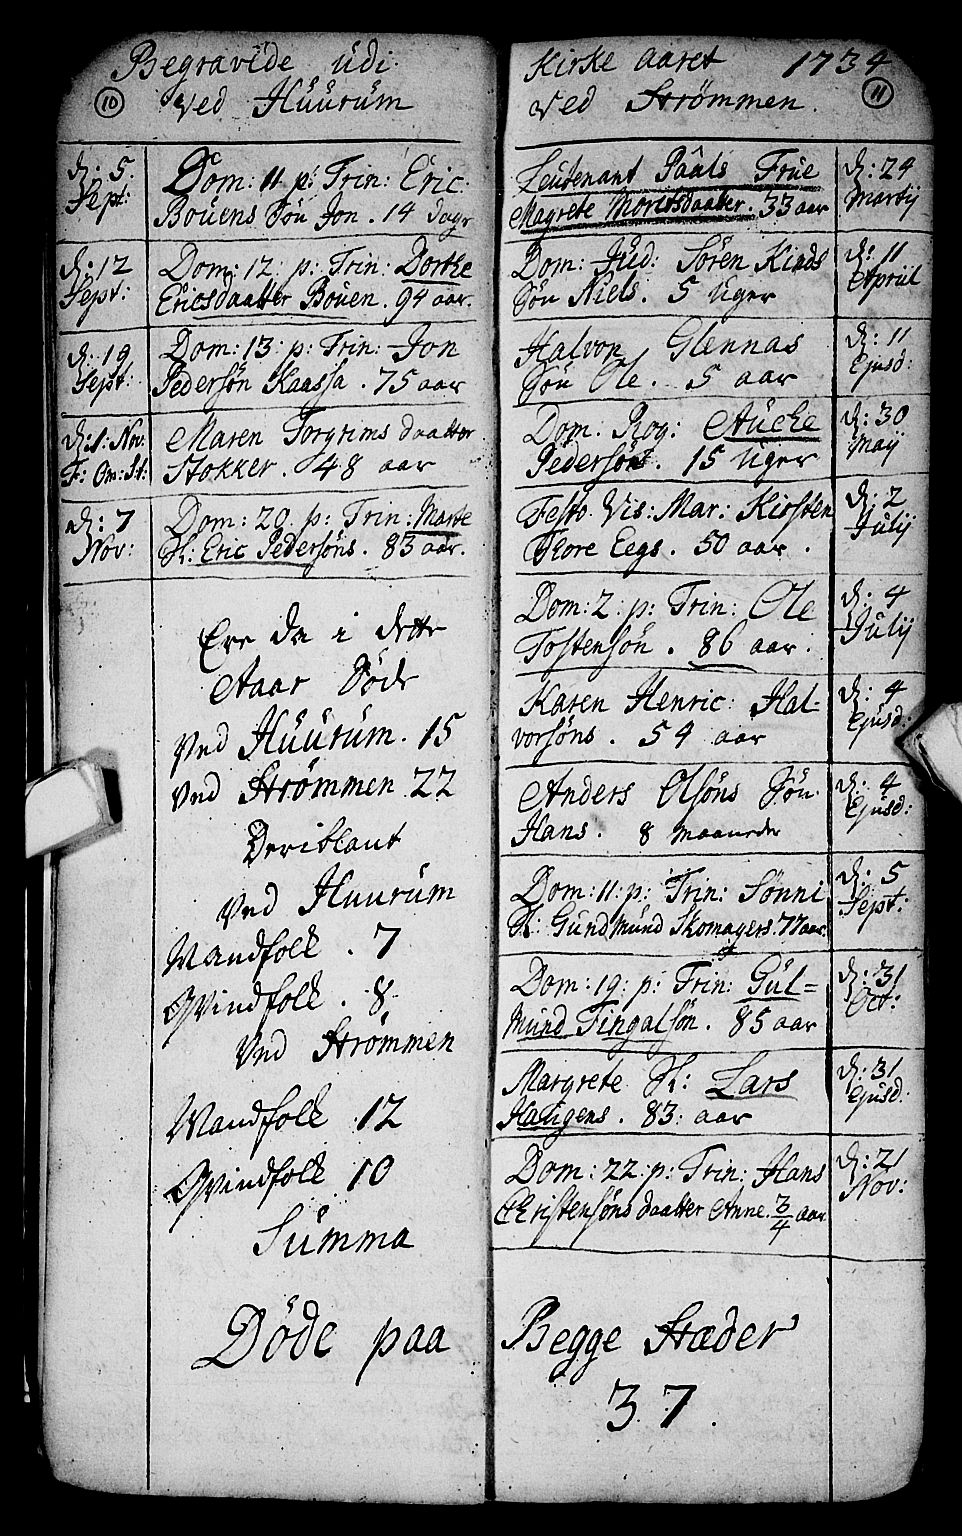 Begravede udi
10
ved Huurum
d: 5. Sept:
Dom: 11 p: Trin: Eric
Bouens Søn Jon. 14 dagr
d: 12 Sept:
Dom: 12: p: Trin: Dorthe
Ericsdaatter Bouen. 94 aar.
d: 19 Sept:
Dom: 13: p: Trin: Jon
Pedersøn Kaassa. 75 aar
d: 1: Nov: F: Om: St:
Maren Torgrims daatter
Stokker. 48 aar
d: 7 Nov:
Dom: 20. p: Trin: Marte
H: Eric Pedersøns. 83 aar.
Ere da i dette
Aaar Døde
Ved Huurum. 15
Ved Strømmen 22
Deriblant
Ved Huurum
Mandfolk . 7
Qvindfolk . 8
Ved Strømmen
Mandfolk . 12
Qvindfolk 10
Summa
Døde paa
Kirke aaret 1734
11
Ved Strømmen.
Leutenant Paals Frue
Magrete Moritsdaatter. 33 aar
d: 24 Martij
Dom: Jud: Søren Kinds
Søn Niels. 5 Uger
d: 11 April
Halvor Glennas
Søn Ole. 5 aar
d: 11 Ejusd:
Dom. Rog: Aucke
Pedersøn. 15 Uger
d: 30 Maij
Festo Vis: Mar: Kirsten
Thore Eegs. 50 aar.
d: 2 Julij
Dom: 2: p: Trin: Ole
Tostensøn. 86 aar.
d: 4 Julij
Karen Henric: Hal-
vorsøns. 54 aar
d: 4 Ejusd:
Anders Olsøns Søn
Hans. 8 maaneder
d: 4 Ejusd:
Dom: 11: p: Trin: Sønni
H: Gundmund Skomagers. 77 aar.
d: 5 Sept:
Dom: 19: p: Trin: Gul=
mund Tingalsøn. 85 aar
d: 31 Oct:
Margrete H: Lars
Haugens. 83: aar
d: 31 Ejusd:
Dom: 22. p: Trin: Hans
Christensøns daatter Anne. 3/4 aar
d: 21 Nov:
Begge Stæder
37.